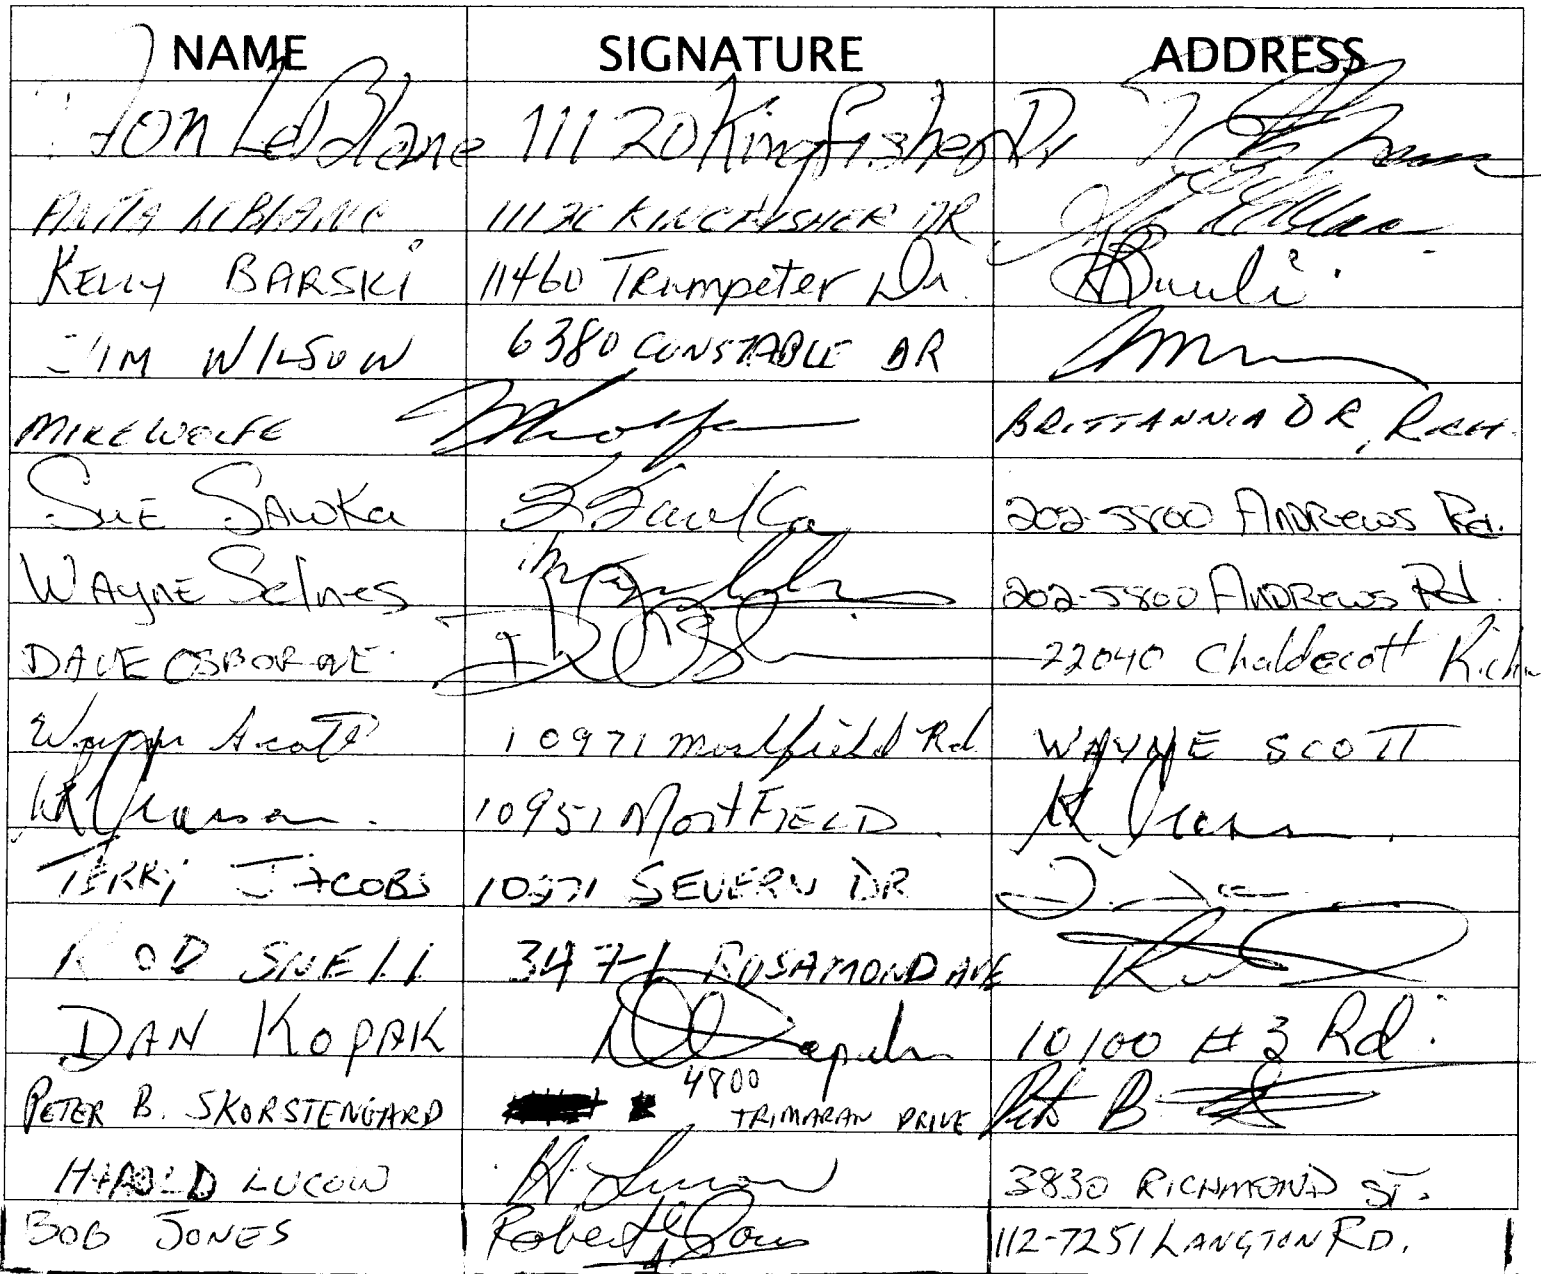 NAME SIGNATURE ADDRESS
Ton LeBlanc 11120 Kingfisher Dr
ANITA LEBLANC 11120 KINGFISHER DR
KELLY BARSKI 11460 Trumpeter Dr.
JIM WILSON 6380 CONSTABLE DR
MIKE WOLFE BRITTANNIA DR, RICH.
SUE SAWKa S Sawka 202-5800 ANDREWS Rd.
WAYNE Selnes 202-5800 ANDREWS Rd.
DAVE OSBORNE 22040 Chaldecott Rich
Wayne Scott 10971 Mortfield Rd WAYNE SCOTT
10951 MortFIELD
TERRY JACOBS 10971 SEVERN DR
ROD SNELL 3471 ROSAMOND AVE
DAN KOPAK 10100 #3 Rd.
PETER B. SKORSTENGARD 4800 TRIMARAN DRIVE Peter B
HAROLD LUCOW H Lucow 3830 RICHMOND ST.
BOB JONES Robert Jones 112-7251 LANGTON RD.